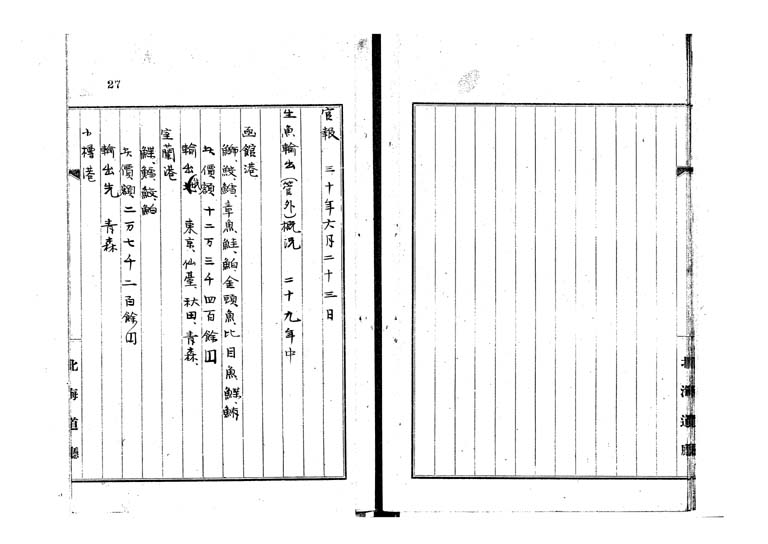 27
官報 三十年六月二十三日
生魚輸出(管外)概況 二十九年中
函館港
鰤、鮫、鱈、章魚、鮭、鮊、金頭魚、比目魚、鰈、鯖
此價額 十二万三千四百餘円
輸出先 東京、仙臺、秋田、青森、
室蘭港
鰈、鱈、鮫、鮊
此價額 二万七千二百餘円
輸出先 青森
小樽港
北海道廳
北海道廳